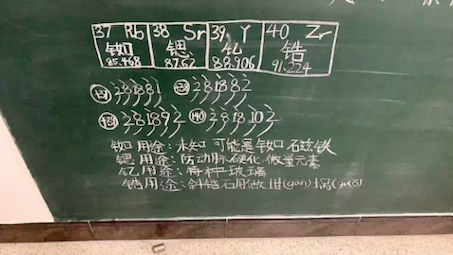 37 Rb 38 Sr 39 Y 40 Zr
铷 锶 钇 锆
85.468 87.62 88.906 91.224
+37 2 8 18 8 1 +38 2 8 18 8 2
+39 2 8 18 9 2 +40 2 8 18 10 2
铷用途：未知 可能是铷 石磁铁
锶用途：防动脉硬化 微量元素
钇用途：特种玻璃
锆用途：斜锆石用做坩(gan)埚(guo)